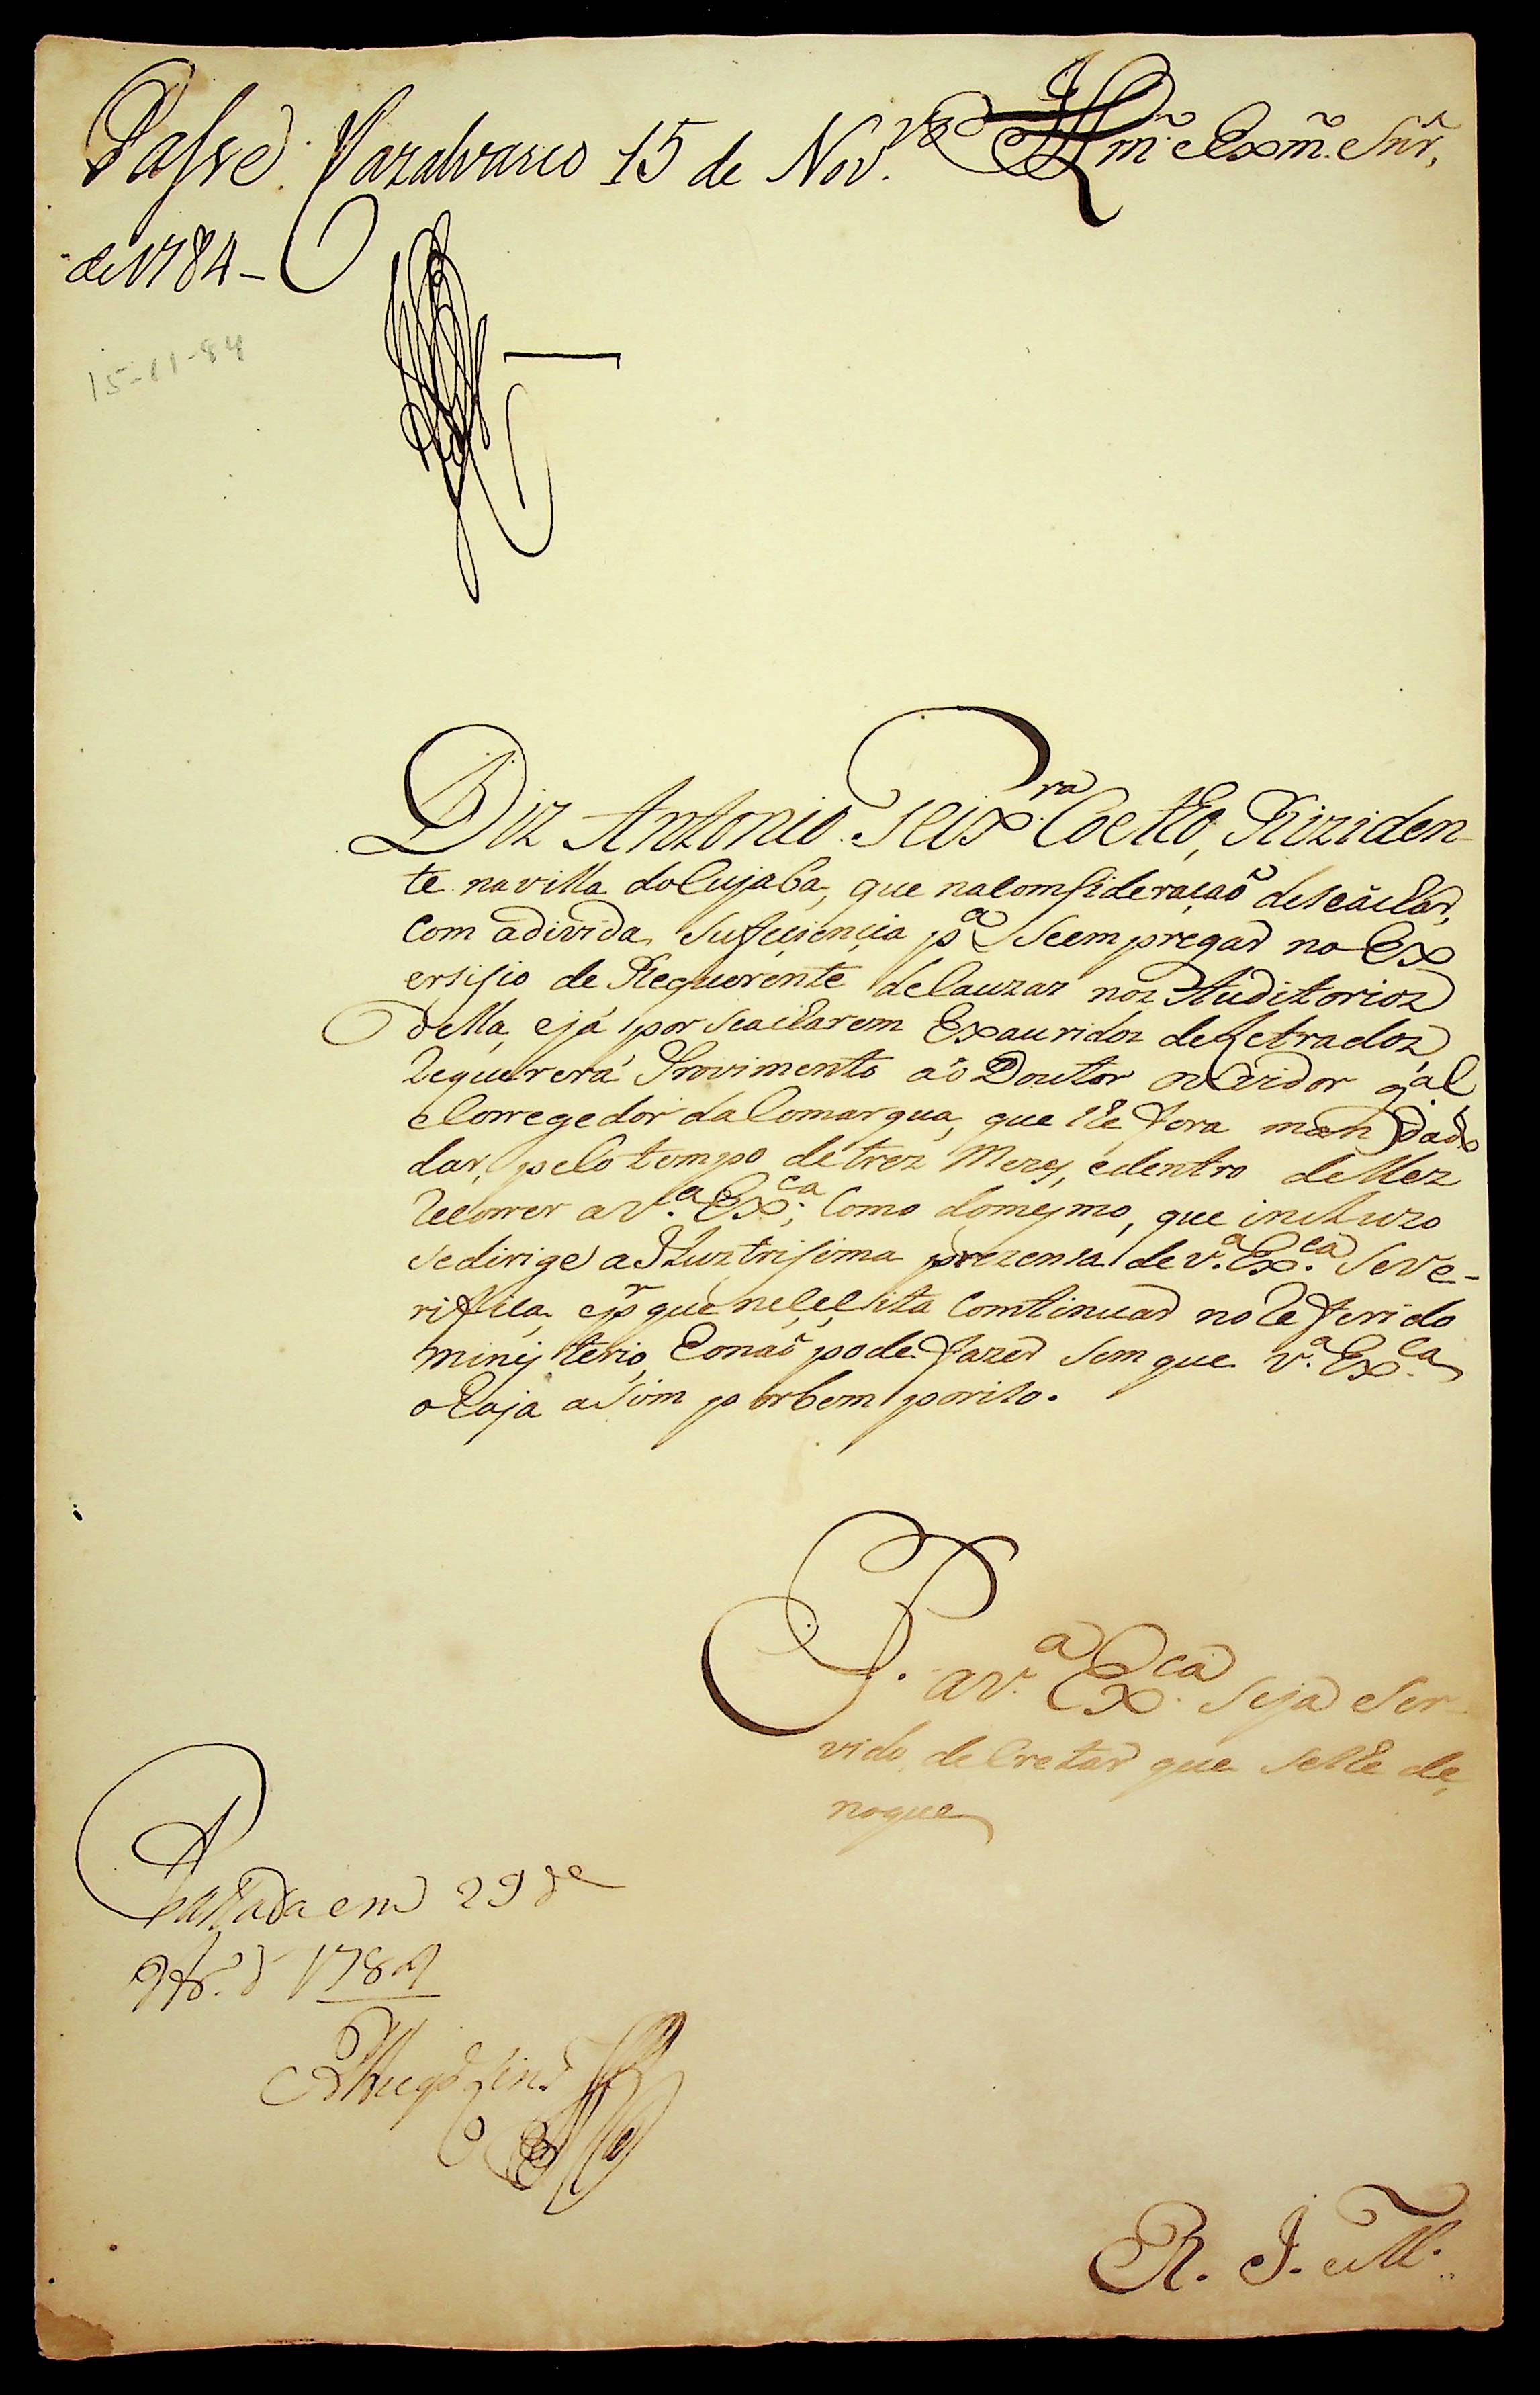 Passe. Cazalvasco 15 de Nov.bro
Illm.o e Exm.o Snr.
de 1784 -
15-11-84
Diz Antonio Teix.ra Coelho, Riziden-
te na villa do Cujaba, que na comsideração de se achar,
com a divida suficiencia p.a se em pregar no Ex
ersisio de Requerente de Cauzaz noz Auditorioz
della, e já por se acharem Exauridoz de Letradoz,
Requerera Provimento ao Doutor ouvidor g.al
e Corregedor da Comarqua, que lhe fora man dado
dar, pelo tempo de trez Mezes, e dentro delles
recorrer a V.a Ex.ca; Como do mesmo, que incluzo
se dirige a Illuztrisima prezensa de V.a Ex.ca se ve-
rifica, e p.r que necesita Comtinuar no referido
ministerio, E o não pode fazer sem que V.a Ex.ca
o haja asim por bem por iso.
P. a V.a Ex.ca seja ser-
vido, de Cretar que se lhe de,
no que
Passada em 29 de
9br.o d 1784
E. R. M.